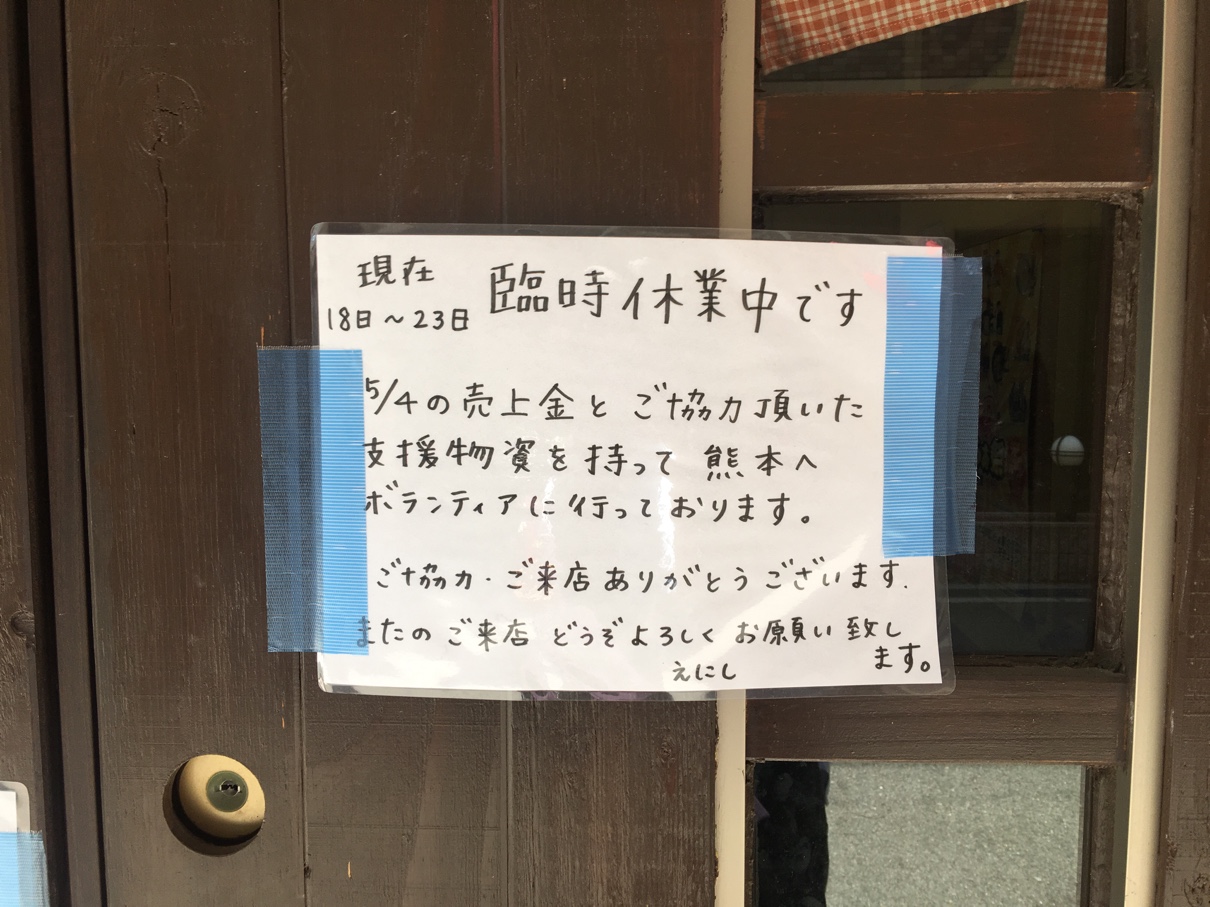 現在
18日～23日
臨時休業中です
5/4の売上金とご協力頂いた
支援物資を持って熊本へ
ボランティアに行っております。
ご協力・ご来店ありがとうございます.
またのご来店どうぞよろしくお願い致し
ます。
えにし